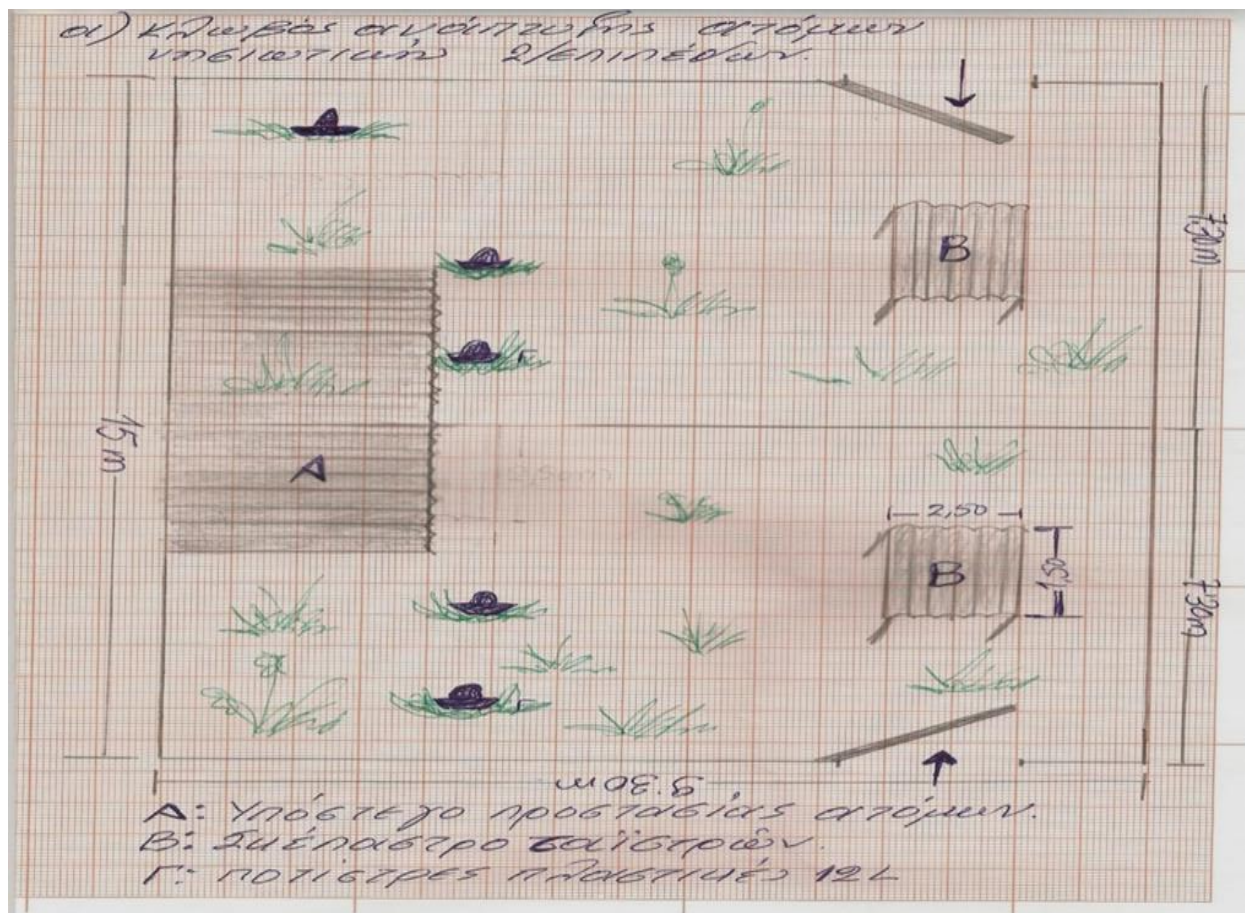 α) Κλωβός ανάπτυξης ατόμων
νησιωτικών 2/επιπέδων.
7,30m
B
15m
A
2,50
B
1,50
7,30m
9.30m
A: Υπόστεγο προστασίας ατόμων.
B: Σκέπαστρο ταϊστρών.
Γ: ποτίστρες πλαστικές 12L